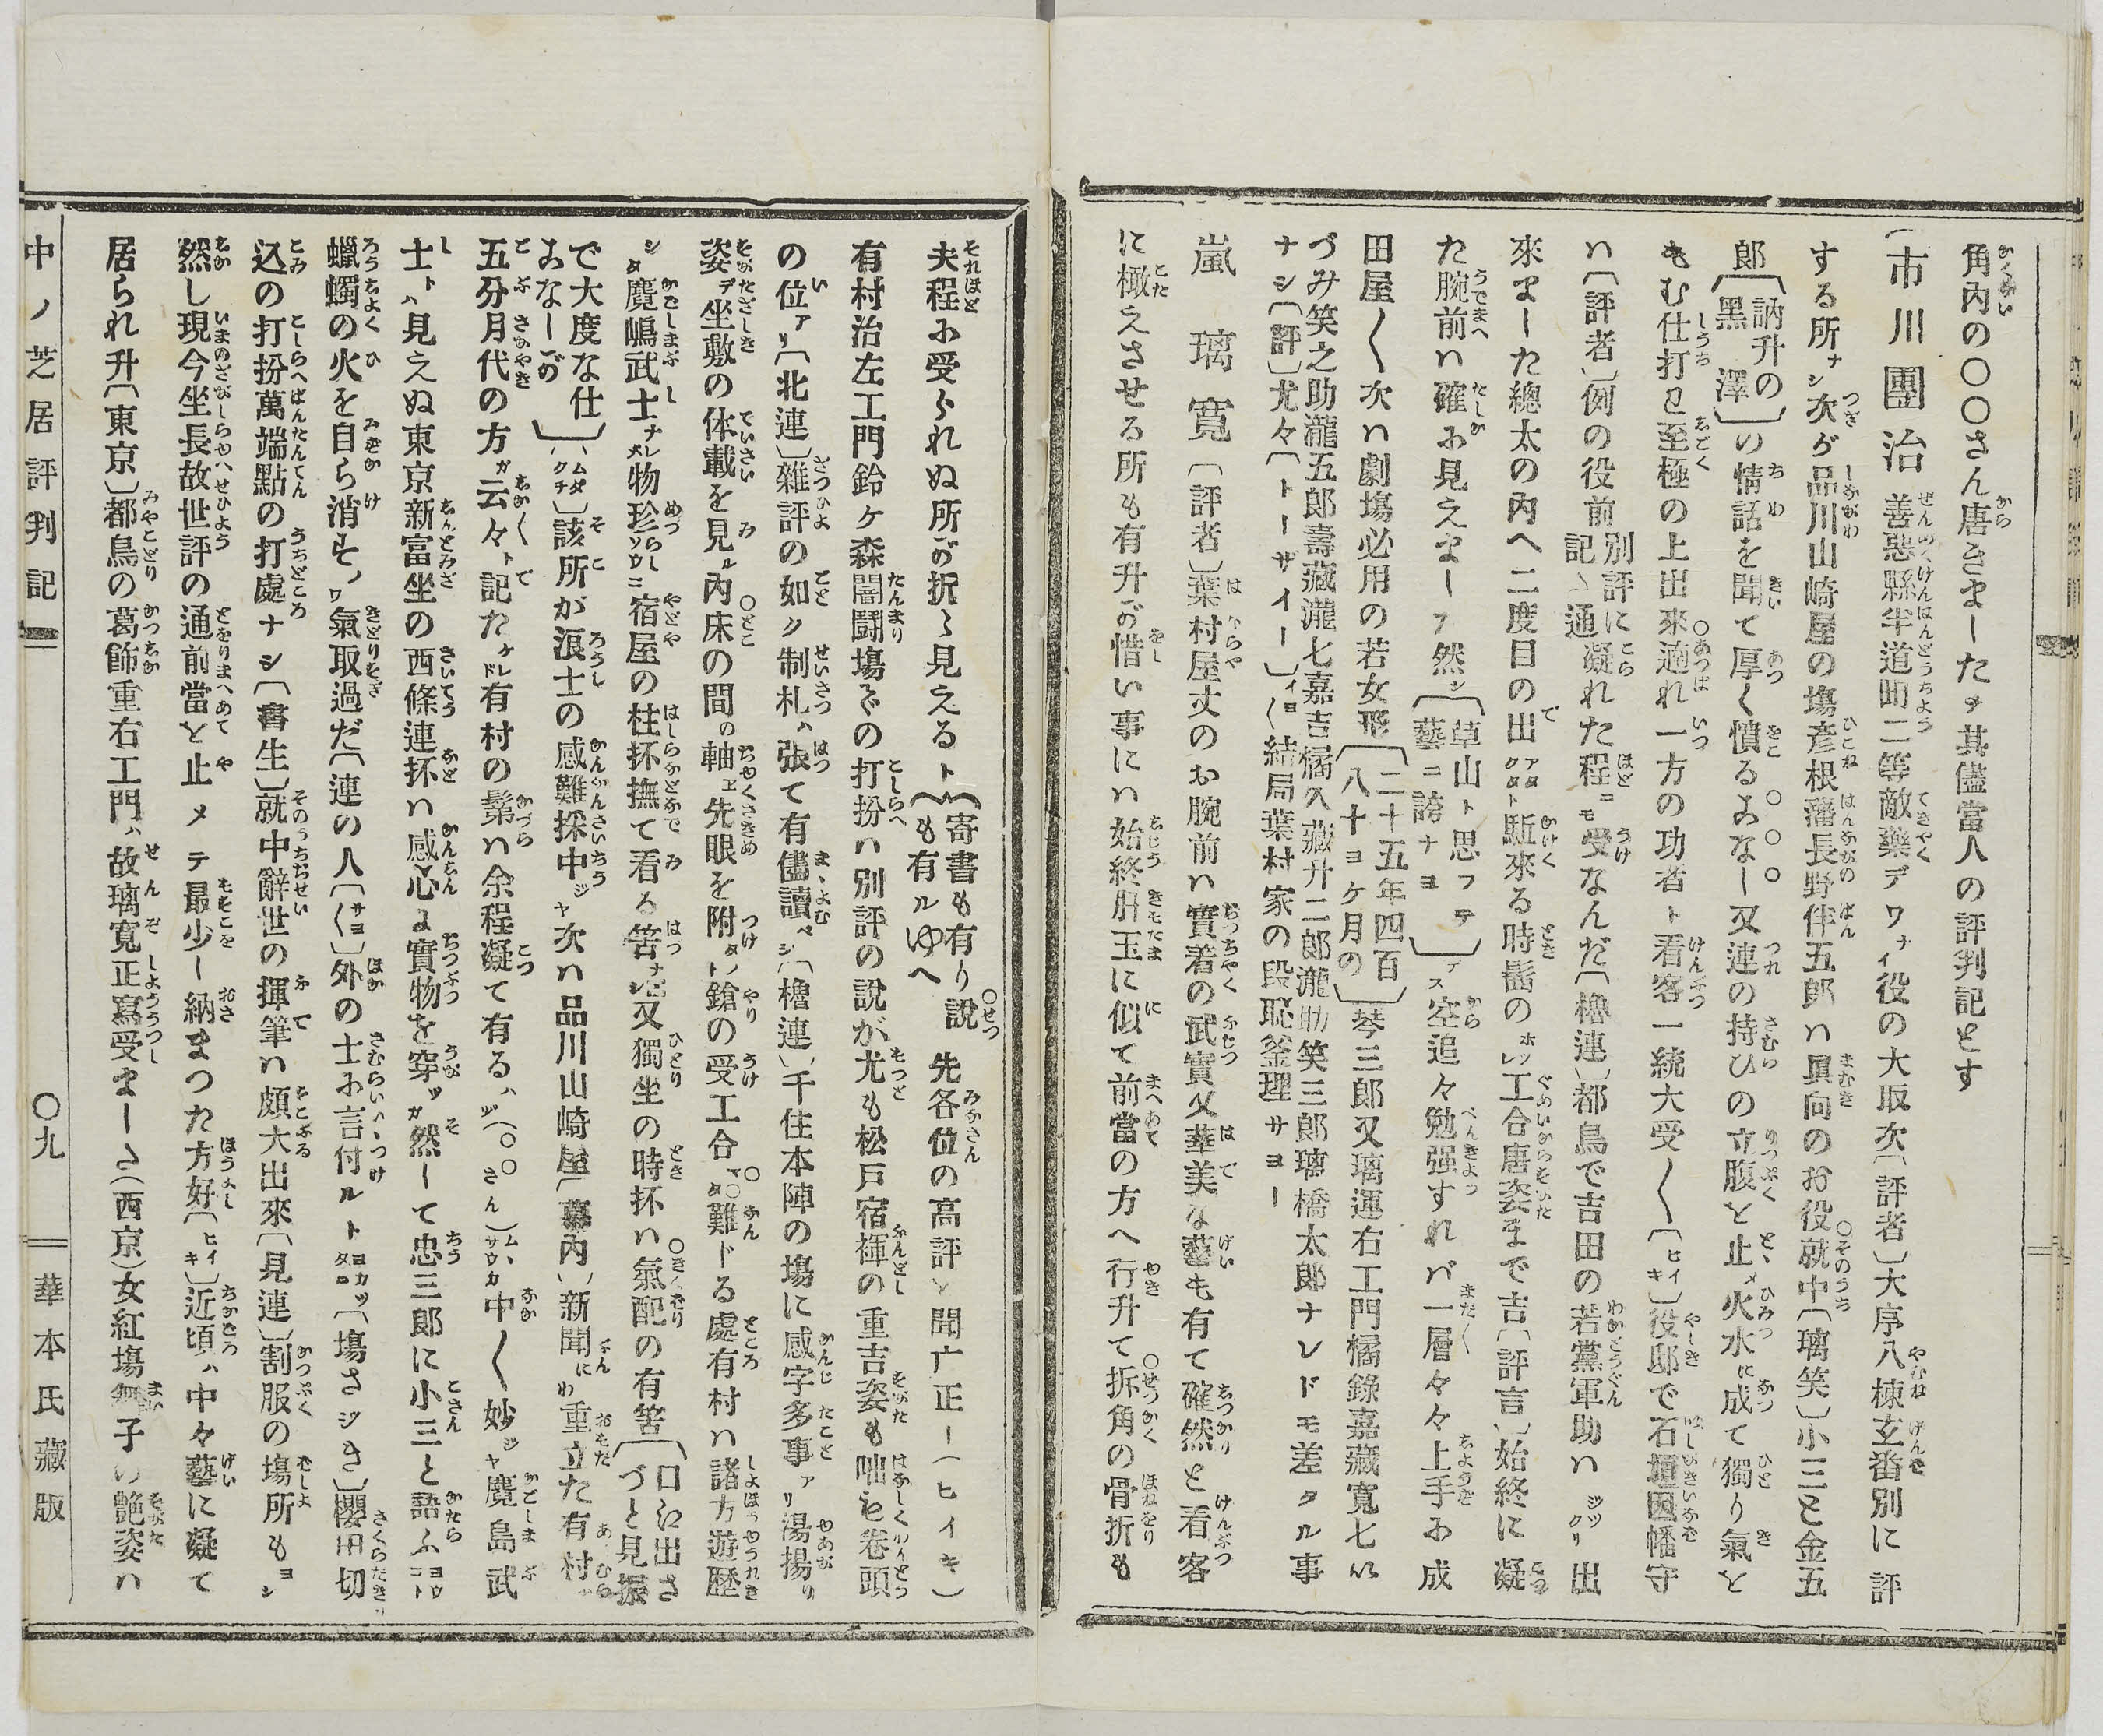 角內の〇〇さん唐きました其儘當人の評判記とす
市川團治 善惡縣半道町二等敵藥デワナイ役の大取次〔評者〕大序八棟玄蕃別に評
する所ナシ次ガ品川山崎屋の塲彥根藩長野伴五郎ハ眞向のお役就中〔璃笑〕小三と金五
郎〔訥升の黑澤〕の情話を聞て厚く憤るおなー又連の持ひの立腹と止メ火水に成て獨り氣と
もむ仕打ヒ至極の上出來適れ一方の功者ト看客一統大受〱〔ヒイキ〕役邸で石垣因幡守
ハ〔評者〕例の役前別評に記ス通凝れた程コモ受なんだ〔櫓連〕都鳥で吉田の若黨軍助ハシックリ出
來ました總太の內へ二度目の出アタクタト駈來る時髷のホツレ工合唐姿まで吉〔評言〕始終に凝
た腕前ハ確お見えまーた然シ〔草山ト思フテ藝コ誇ナヨ〕デス空追々勉强すれバ一層々々上手お成
田屋〱次ハ劇塲必用の若女形〔二十五年四百八十ヨケ月の〕琴三郎又璃運右工門橘錄嘉藏寬七以
づみ笑之助瀧五郎壽藏瀧七嘉吉橘久藏升二郎瀧助笑三郎璃橋太郎ナレドモ差タル事
ナシ〔評〕尤々〔トーザイー〕イヨ〱結局葉村家の段恥釜理サヨー
嵐璃寬〔評者〕葉村屋丈のお腕前ハ實着の武實父華美な藝も有て確然と看客
に橄えさせる所も有升が惜い事にハ始終肝玉に似て前當の方へ行升て拆角の骨折も
夫程お受られぬ所が折〻見えるト〔寄書も有りへも有ルゆへ〕說 先各位の高評ヲ聞广正ー（ヒイキ）
有村治左工門鈴ケ森闇鬪塲での打扮ハ別評の說が尤も松戶宿褌の重吉姿も咄も卷頭
の位アリ〔北連〕雜評の如ク制札ハ張て有儘讀ベシ〔櫓連〕千住本陣の塲に感字多事アリ湯揚リ
姿デ坐敷の体載を見ル內床の間の軸エ先眼を附タト鎗の受工合マタ難ドる處有村ハ諸方遊歷
シタ麑嶋武士ナレメ物珍らしソウニ宿屋の柱抔撫て看る筈ナシ又獨坐の時抔ハ氣配の有筈〔口ニ出さづと見振
で大度な仕おなーが〕〔ムダクチ〕該所が浪士の感難採中ジヤ次ハ品川山崎屋〔幕內〕新聞にわ重立た有村ガ
五分月代の方ガ云々ト記たケレド有村の鬘ハ余程凝て有るハヅ（〇〇さん）ムヽサウカ中〱妙ジヤ麑島武
士トハ見えぬ東京新富坐の西條連抔ハ感心よ實物を穿ッガ然ーて忠三郎に小三と語ふヨウコト
蠟蠋の火を自ら消そノワ氣取過だ〔連の人〔〱サヨ〕外の士お言付ルトヨカツタロ〔塲さジき〕櫻田切
込の打扮萬端點の打處ナシ〔書生〕就中辭世の揮筆ハ頗大出來〔見連〕割服の塲所もヨシ
然し現今坐長故世評の通前當と止メテ最少ー納まつた方好〔ヒイキ〕近頃ハ中々藝に凝て
居られ升〔東京〕都鳥の葛飾重右工門ハ故璃寬正寫受まーた（西京）女紅塲舞子の艶姿ハ
中ノ芝居評判記 〇九 華本氏藏版